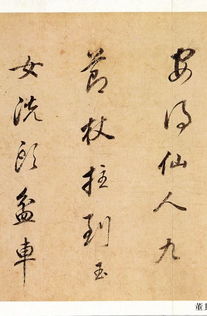 安得仙人九
節杖拄到玉
女洗頭盆車
董